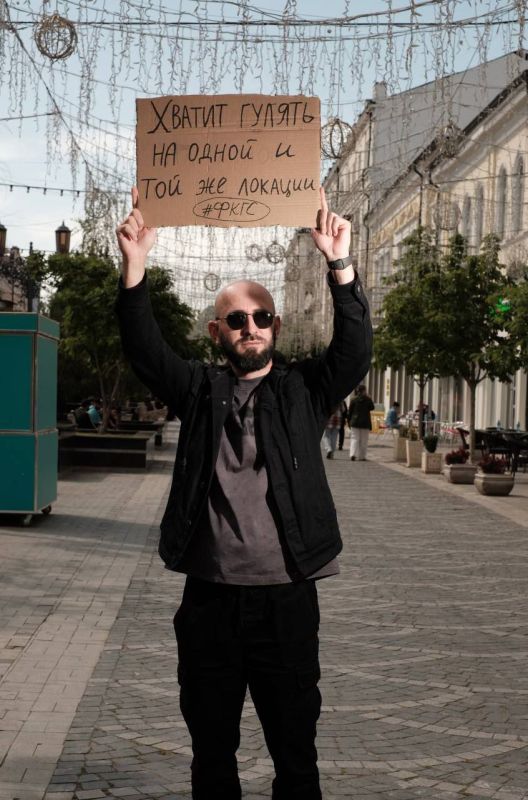 ХВАТИТ ГУЛЯТЬ
НА ОДНОЙ И
ТОЙ ЖЕ ЛОКАЦИИ
#ФКГС